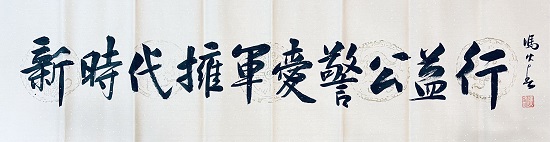 新時代擁軍愛警公益行